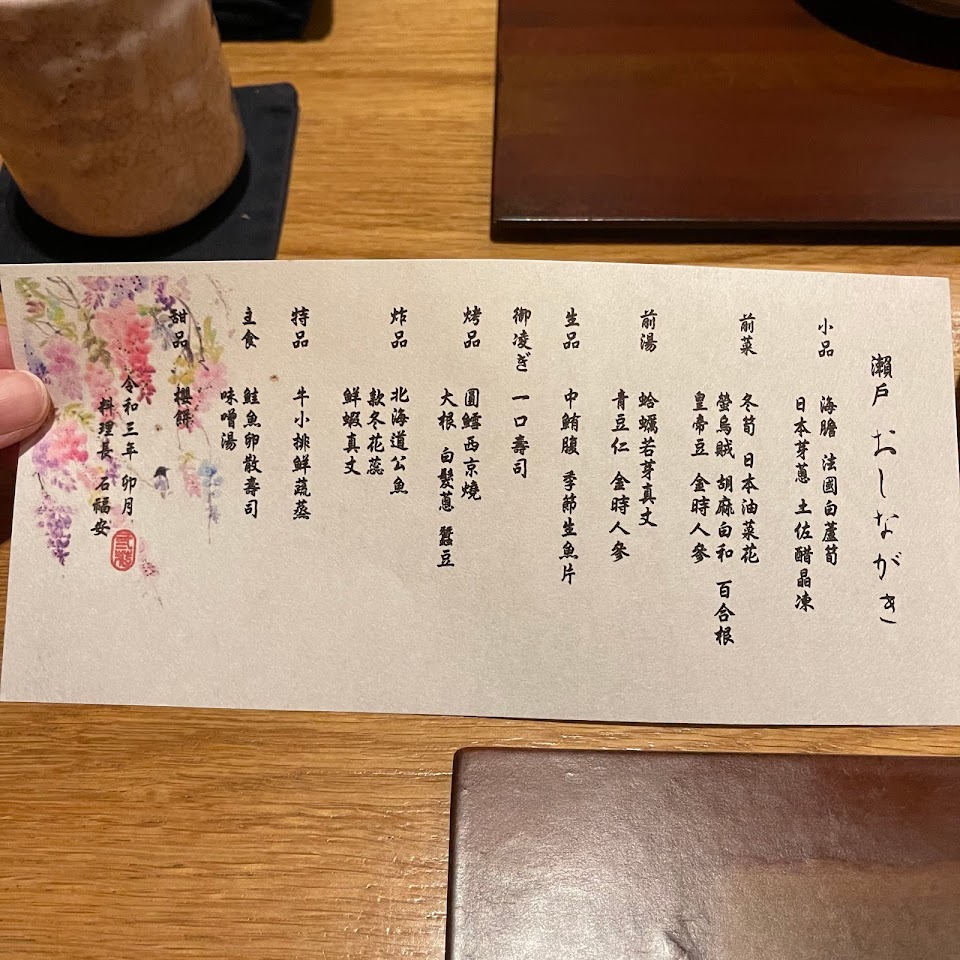 瀨戶 おしながき
小品 海膽 法國白蘆筍
日本芽蔥 土佐醋晶凍
前菜 冬筍 日本油菜花
螢烏賊 胡麻白和 百合根
皇帝豆 金時人參
前湯 蛤蠣若芽真丈
青豆仁 金時人參
生品 中鮪腹 季節生魚片
御凌ぎ 一口壽司
烤品 圓鱈西京燒
大根 白髮蔥 蠶豆
炸品 北海道公魚
款冬花蕊
鮮蝦真丈
特品 牛小排鮮蔬蒸
主食 鮭魚卵散壽司
味噌湯
甜品 櫻餅
令和三年 卯月
料理長 石福安